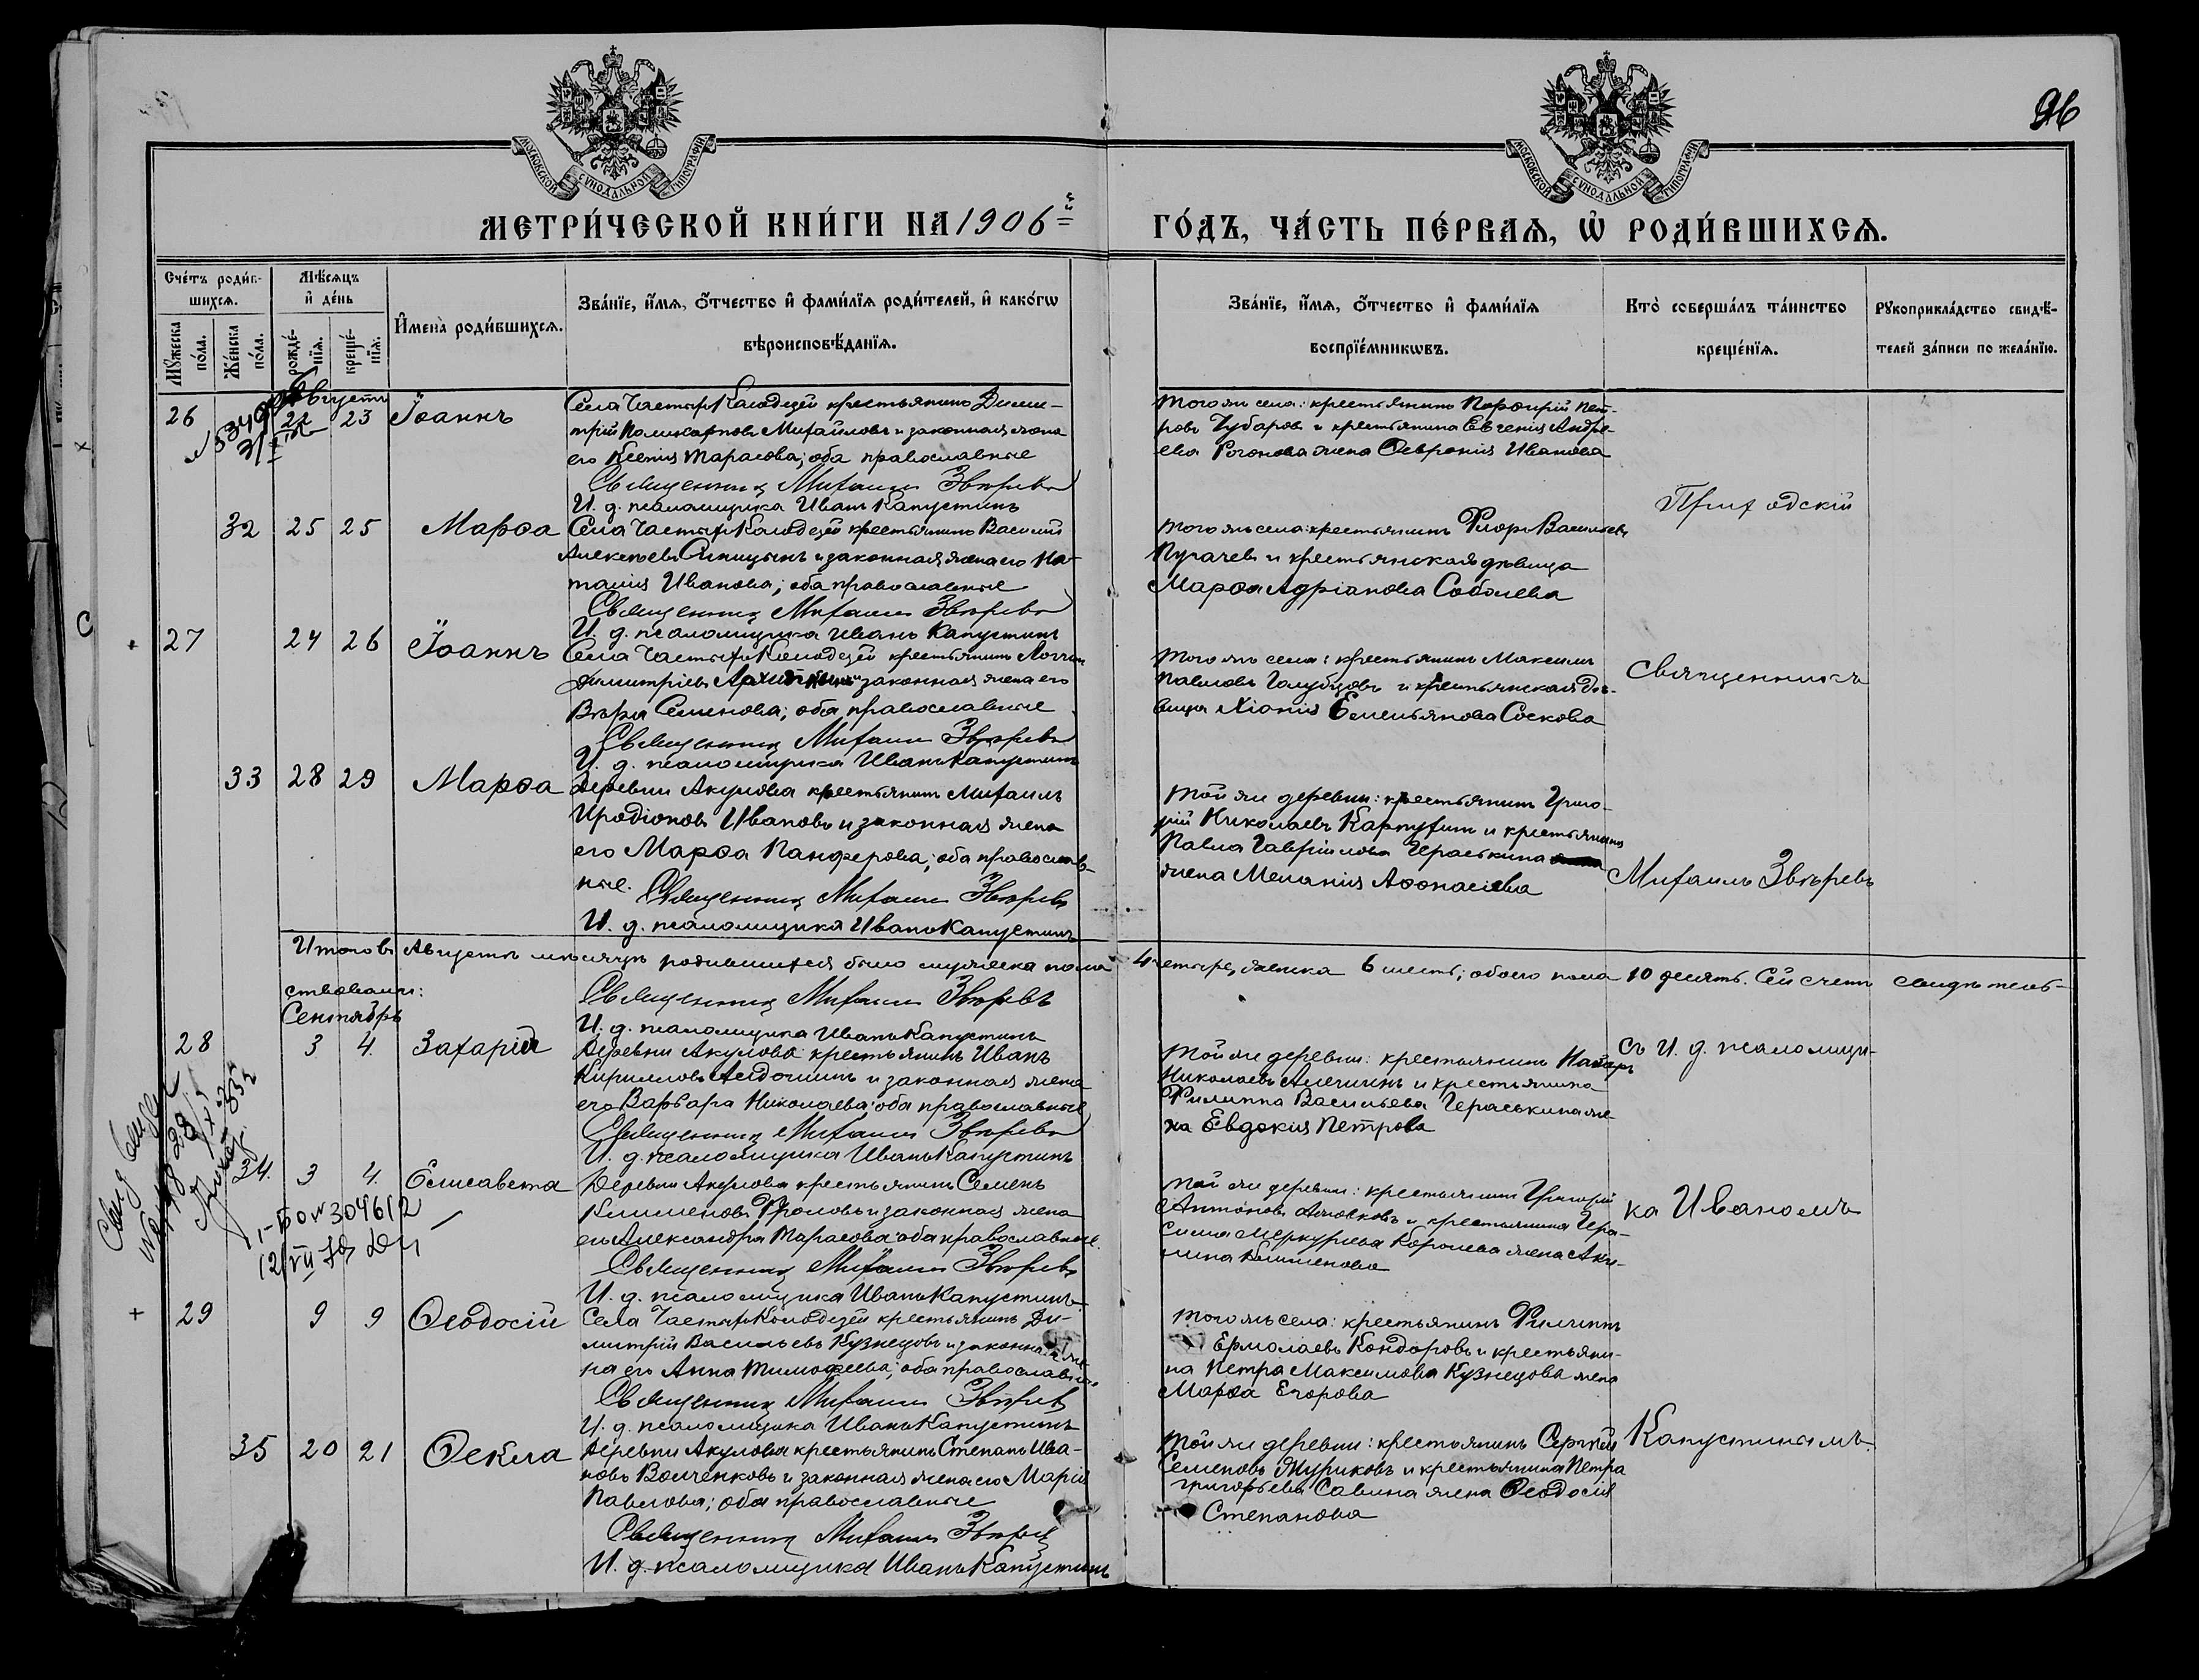 96
МОСКОВСКОЙ СУНОДАЛЬНОЙ ТИПОГРАФІИ
МОСКОВСКОЙ СУНОДАЛЬНОЙ ТИПОГРАФІИ
МЕТРИ́ЧЕСКОЙ КНИ́ГИ НА 1906 й
ГО́ДЪ, ЧА́СТЬ ПЕ́РВАѦ, Ѡ҆ РОДИ́ВШИХСѦ.
Сче́тъ роди́в-
шихсѧ.
Мꙋ́жеска по́ла.
Же́нска по́ла.
Мѣ́сѧцъ
и҆ де́нь
рожде́-
нїѧ.
креще́-
нїѧ.
И҆мена̀ роди́вшихсѧ.
Зва́нїе, и҆́мѧ, ѻ҆́тчество и҆ фами́лїѧ роди́телей, и҆ како́гѡ
вѣроисповѣ́данїѧ.
Зва́нїе, и҆́мѧ, ѻ҆́тчество и҆ фами́лїѧ
воспрїе́мникѡвъ.
Кто̀ соверша́лъ та́инство
креще́нїѧ.
Рꙋкоприкла́дство свидѣ́-
телей за́писи по жела́нїю.
Августъ
26 22 23 Іоаннъ
Села Частыхъ Колодезей крестьянинъ Дими-
трій Поликарповъ Михайловъ и законная жена
его Ксенія Тарасова; оба православные
Священникъ Михаилъ Звѣревъ
И. д. псаломщика Иванъ Капустинъ
Того же села: крестьянинъ Порфирій Пет-
ровъ Чубаровъ и крестьянина Евгенія Андре-
ева Рогонова жена Февронія Иванова
32 25 25 Марѳа
Села Частыхъ Колодезей крестьянинъ Василій
Алексѣевъ Синицынъ и законная жена его На-
талія Иванова; оба православные
Священникъ Михаилъ Звѣревъ
И. д. псаломщика Иванъ Капустинъ
Того жъ села: крестьянинъ Флоръ Васильевъ
Пугачевъ и крестьянская дѣвица
Марѳа Адріанова Соболева
27 24 26 Іоаннъ
Села Частыхъ Колодезей крестьянинъ Логгинъ
Димитріевъ и законная жена его
Вѣра Семенова; оба православные
Священникъ Михаилъ Звѣревъ
И. д. псаломщика Иванъ Капустинъ
Того жъ села: крестьянинъ Максимъ
Павловъ Голубцовъ и крестьянская дѣ-
вица Хіонія Емельянова Соскова
33 28 29 Марѳа
Деревни Акулова крестьянинъ Михаилъ
Иродіоновъ Ивановъ и законная жена
его Марѳа Панферова; оба православ-
ные. Священникъ Михаилъ Звѣревъ
И. д. псаломщика Иванъ Капустинъ
Той же деревни: крестьянинъ Григо-
рій Николаевъ Карпухинъ и крестьянина
Павла Гавріилова Гераськина
жена Меланія Аѳонасіева
Приходскій
священникъ
Михаилъ Звѣревъ
съ И. д. псаломщи-
ка Иваномъ
Капустинымъ.
Итого въ Августѣ мѣсяцѣ родившихся было мужеска пола 4 четыре, женска 6 шесть; обоего пола 10 десять. Сей счетъ свидѣтель-
ствовали:
Священникъ Михаилъ Звѣревъ
И. д. псаломщика Иванъ Капустинъ
Сентябрь
28 3 4. Захарія
Деревни Акулова крестьянинъ Иванъ
Кирилловъ Авдошинъ и законная жена
его Варвара Николаева; оба православные
Священникъ Михаилъ Звѣревъ
И. д. псаломщика Иванъ Капустинъ
Той же деревни: крестьянинъ Назаръ
Николаевъ Алешинъ и крестьянина
Филиппа Васильева Гераськина же-
на Евдокія Петрова
34. 3 4. Елисавета
Деревни Акулова крестьянинъ Семенъ
Климентовъ Фроловъ и законная жена
его Александра Тарасова; оба православные.
Священникъ Михаилъ Звѣревъ
И. д. псаломщика Иванъ Капустинъ.
Той же деревни: крестьянинъ Григорій
Антоновъ и крестьянина Гера-
сима Меркурьева Королева жена Аки-
лина Климентова
29 9 9 Ѳеодосій
Села Частыхъ Колодезей крестьянинъ Ди-
митрій Васильевъ Кузнецовъ и законная же-
на его Анна Тимоѳеева; оба православные
Священникъ Михаилъ Звѣревъ
И. д. псаломщика Иванъ Капустинъ
Того жъ села: крестьянинъ Филиппъ
Ермолаевъ Кондоровъ и крестьяни-
на Петра Максимова Кузнецова жена
Марѳа Егорова
35 20 21 Ѳекла
Деревни Акулова крестьянинъ Степанъ Ива-
новъ Волченковъ и законная жена его Марія
Павлова; оба православные
Священникъ Михаилъ Звѣревъ
И. д. псаломщика Иванъ Капустинъ
Той же деревни: крестьянинъ Сергѣй
Семеновъ Журиковъ и крестьянина Петра
Григорьева Савина жена Ѳеодосія
Степанова